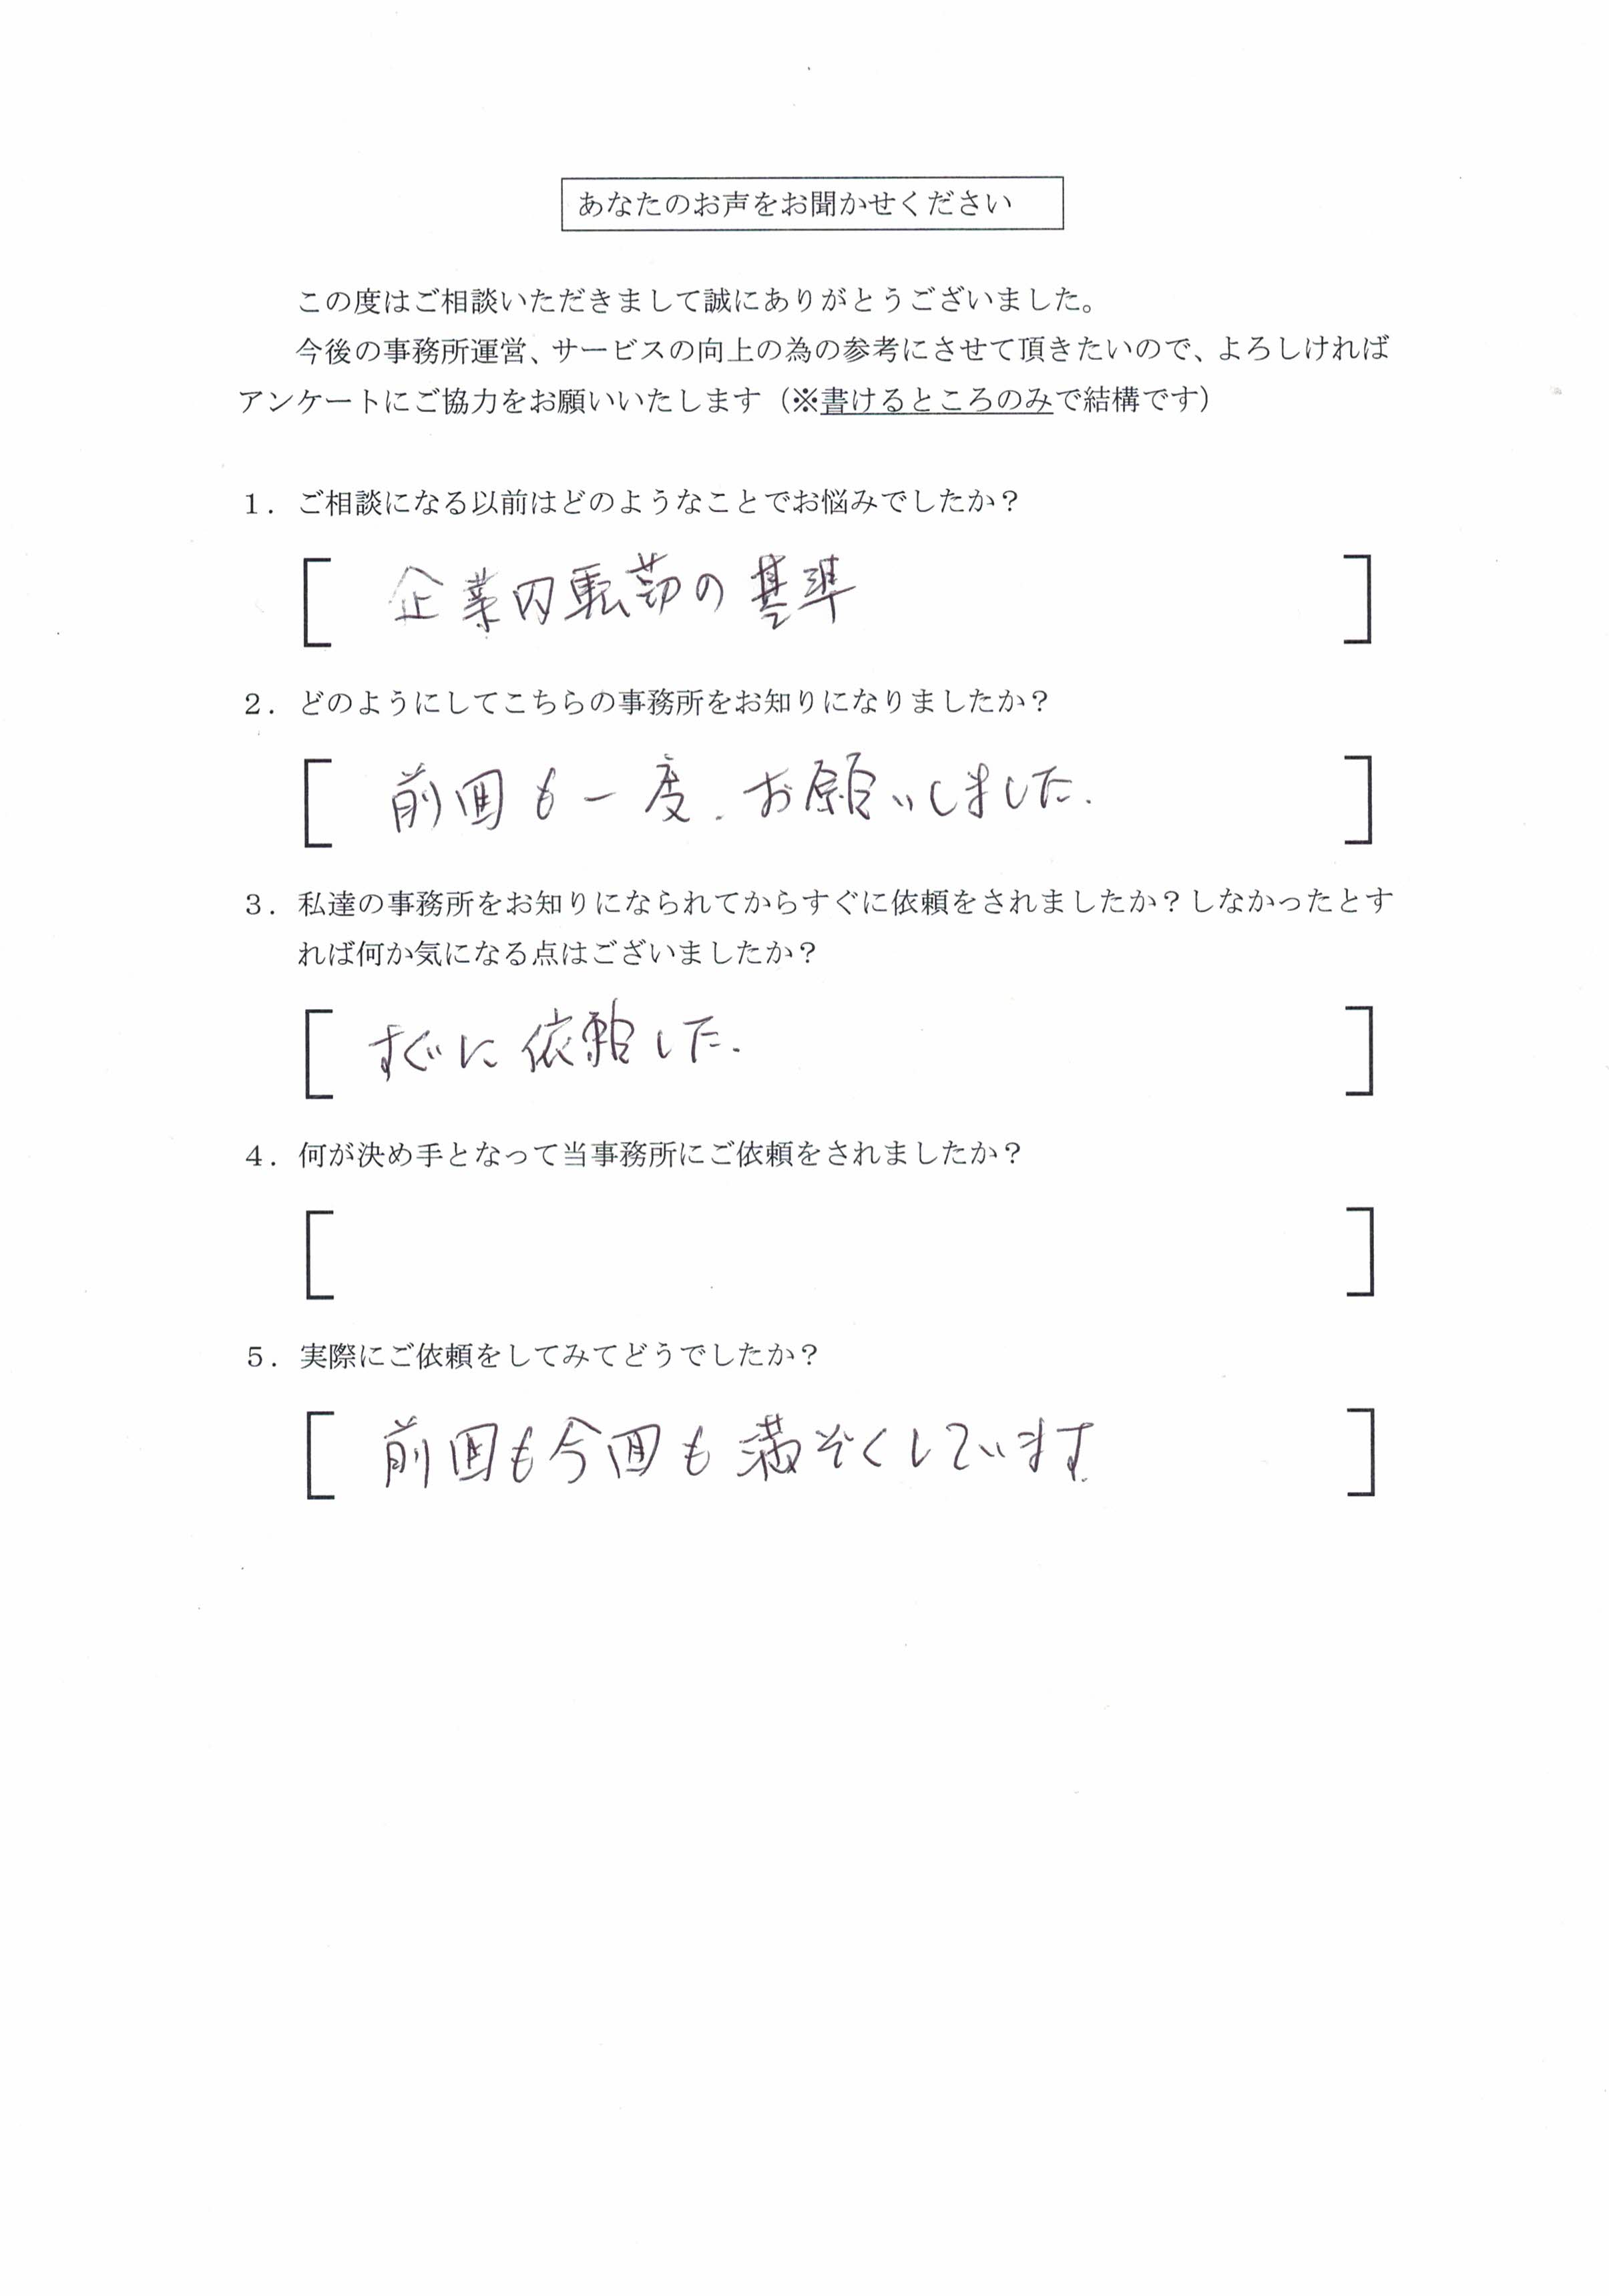 あなたのお声をお聞かせください
この度はご相談いただきまして誠にありがとうございました。
今後の事務所運営、サービスの向上の為の参考にさせて頂きたいので、よろしければ
アンケートにご協力をお願いいたします（※書けるところのみで結構です）
１．ご相談になる以前はどのようなことでお悩みでしたか？
企業内転勤の基準
２．どのようにしてこちらの事務所をお知りになりましたか？
前回も一度、お願いしました．
３．私達の事務所をお知りになられてからすぐに依頼をされましたか？しなかったとす
れば何か気になる点はございましたか？
すぐに依頼した．
４．何が決め手となって当事務所にご依頼をされましたか？
５．実際にご依頼をしてみてどうでしたか？
前回も今回も満ぞくしています